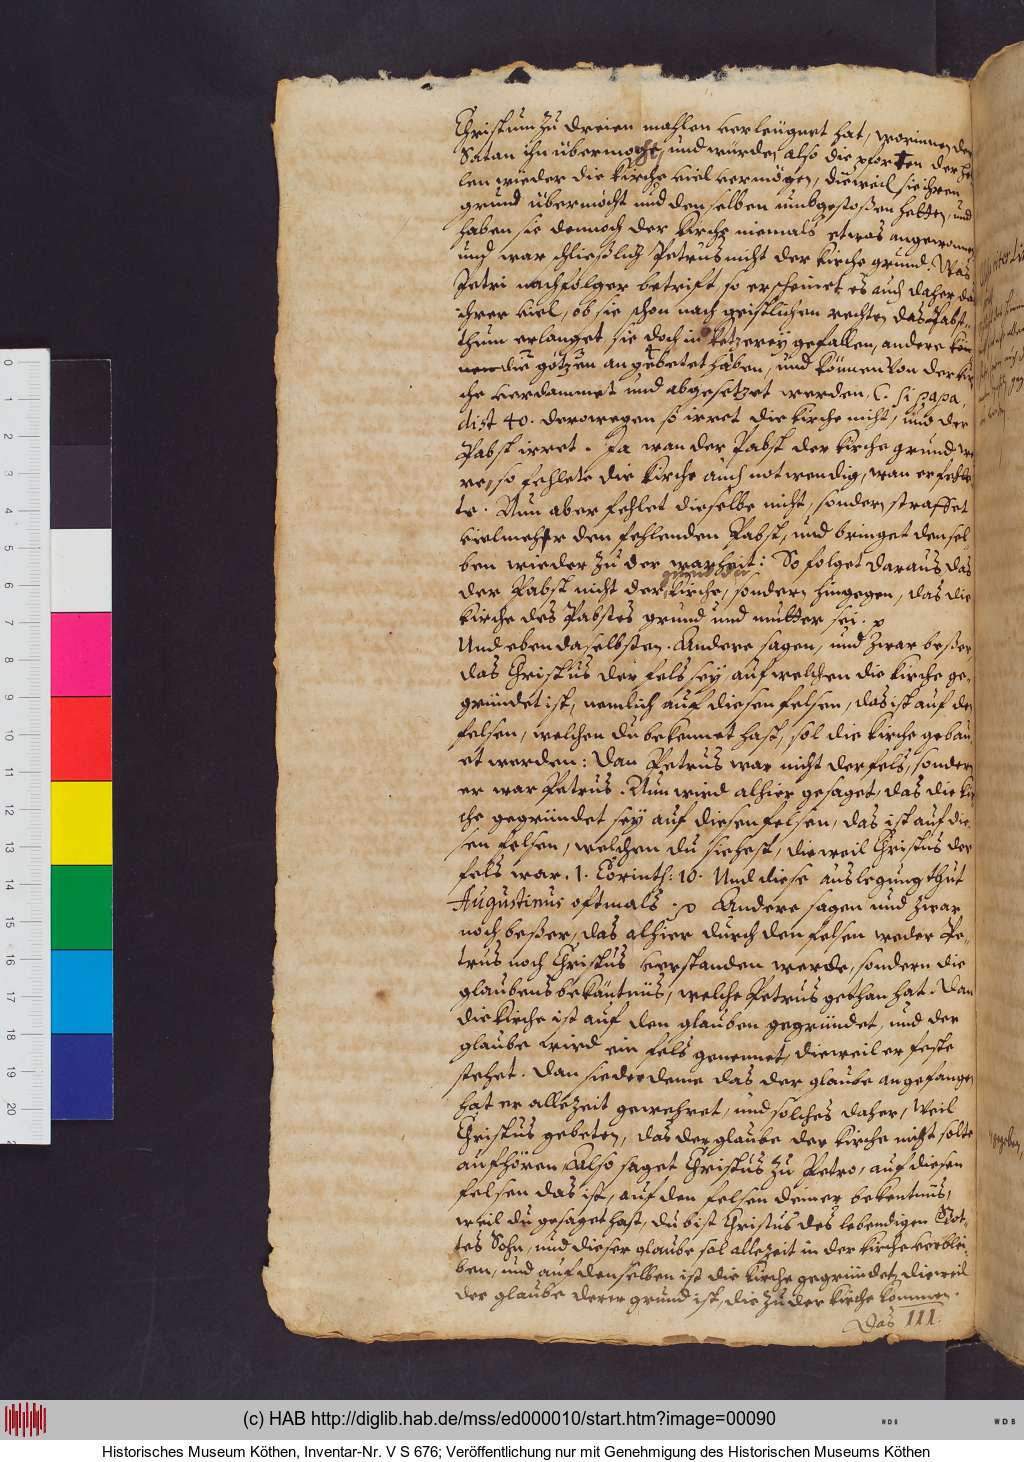 Christum zu dreien mahlen verleügnet hat, worinnen der
Satan ihn übermocht, und würden also die pforten der hel
len wieder die Kirche viel vermögen, dieweil sie ihren
grund übermocht und denselben umbgestoßen hetten, und
haben sie dennoch der Kirche niemals etwas angewonnen
und war schließlich Petrus nicht der Kirche grund. Was
Petri nachfolger betrift, so erscheinet es auch daher das
ihrer viel, ob sie schon nach geistlichen rechten das Pabst-
thum erlanget, sie doch in Ketzerey gefallen, andere
die götzen angebetet haben, und können von der Kir
che verdammet und abgesetzet werden, C. si papa,
dist 40. derowegen so irret die Kirche nicht, und der
Pabst irret. Ja wan der Pabst der Kirche grund we
re, so fehlete die Kirche auch notwendig, wan er fehle
te. Nun aber fehlet dieselbe nicht, sondern straffet
vielmehr den fehlenden Pabst, und bringet densel
ben wieder zu der warheit: So folget daraus das
der Pabst nicht der Kirche, sondern hingegen, das die
Kirche des Pabstes grund und mutter sei.
Und eben daselbsten. Andere sagen, und zwar beßer,
das Christus der fels sey, auf welchen die Kirche ge-
gründet ist, nemlich auf diesen felsen, das ist auf den
felsen, welchen du bekennet hast, sol die Kirche gebau
et werden: Dan Petrus war nicht der fels, sondern
er war Petrus. Nun wird alhier gesaget, das die Kir
che gegründet sey auf diesen felsen, das ist auf die-
sen felsen, welchen du siehest, dieweil Christus der
fels war. 1. Corinth: 10. Und diese auslegung thut
Augustinus oftmals. Andere sagen und zwar
noch beßer, das alhier durch den felsen weder Pe-
trus noch Christus verstanden werde, sondern die
glaubens bekäntnüs, welche Petrus gethan hat. Dan
die Kirche ist auf den glauben gegründet, und der
glaube wird ein fels genennet, dieweil er feste
stehet. Dan sieder deme das der glaube angefangen
hat er allezeit gewehret, und solches daher, weil
Christus gebeten, das der glaube der Kirche nicht solte
aufhören. Also saget Christus zu Petro, auf diesen
felsen das ist, auf den felsen deiner bekentnüs,
weil du gesaget hast, du bist Christus des lebendigen Got-
tes Sohn, und dieser glaube sol allezeit in der Kirche verblei-
ben, und auf denselben ist die Kirche gegründet, dieweil
der glaube derer grund ist, die zu der Kirche kommen.
Das III.
0
1
2
3
4
5
6
7
8
9
10
11
12
13
14
15
16
17
18
19
20
(c) HAB http://diglib.hab.de/mss/ed000010/start.htm?image=00090
WDB
WDB
Historisches Museum Köthen, Inventar-Nr. V S 676; Veröffentlichung nur mit Genehmigung des Historischen Museums Köthen